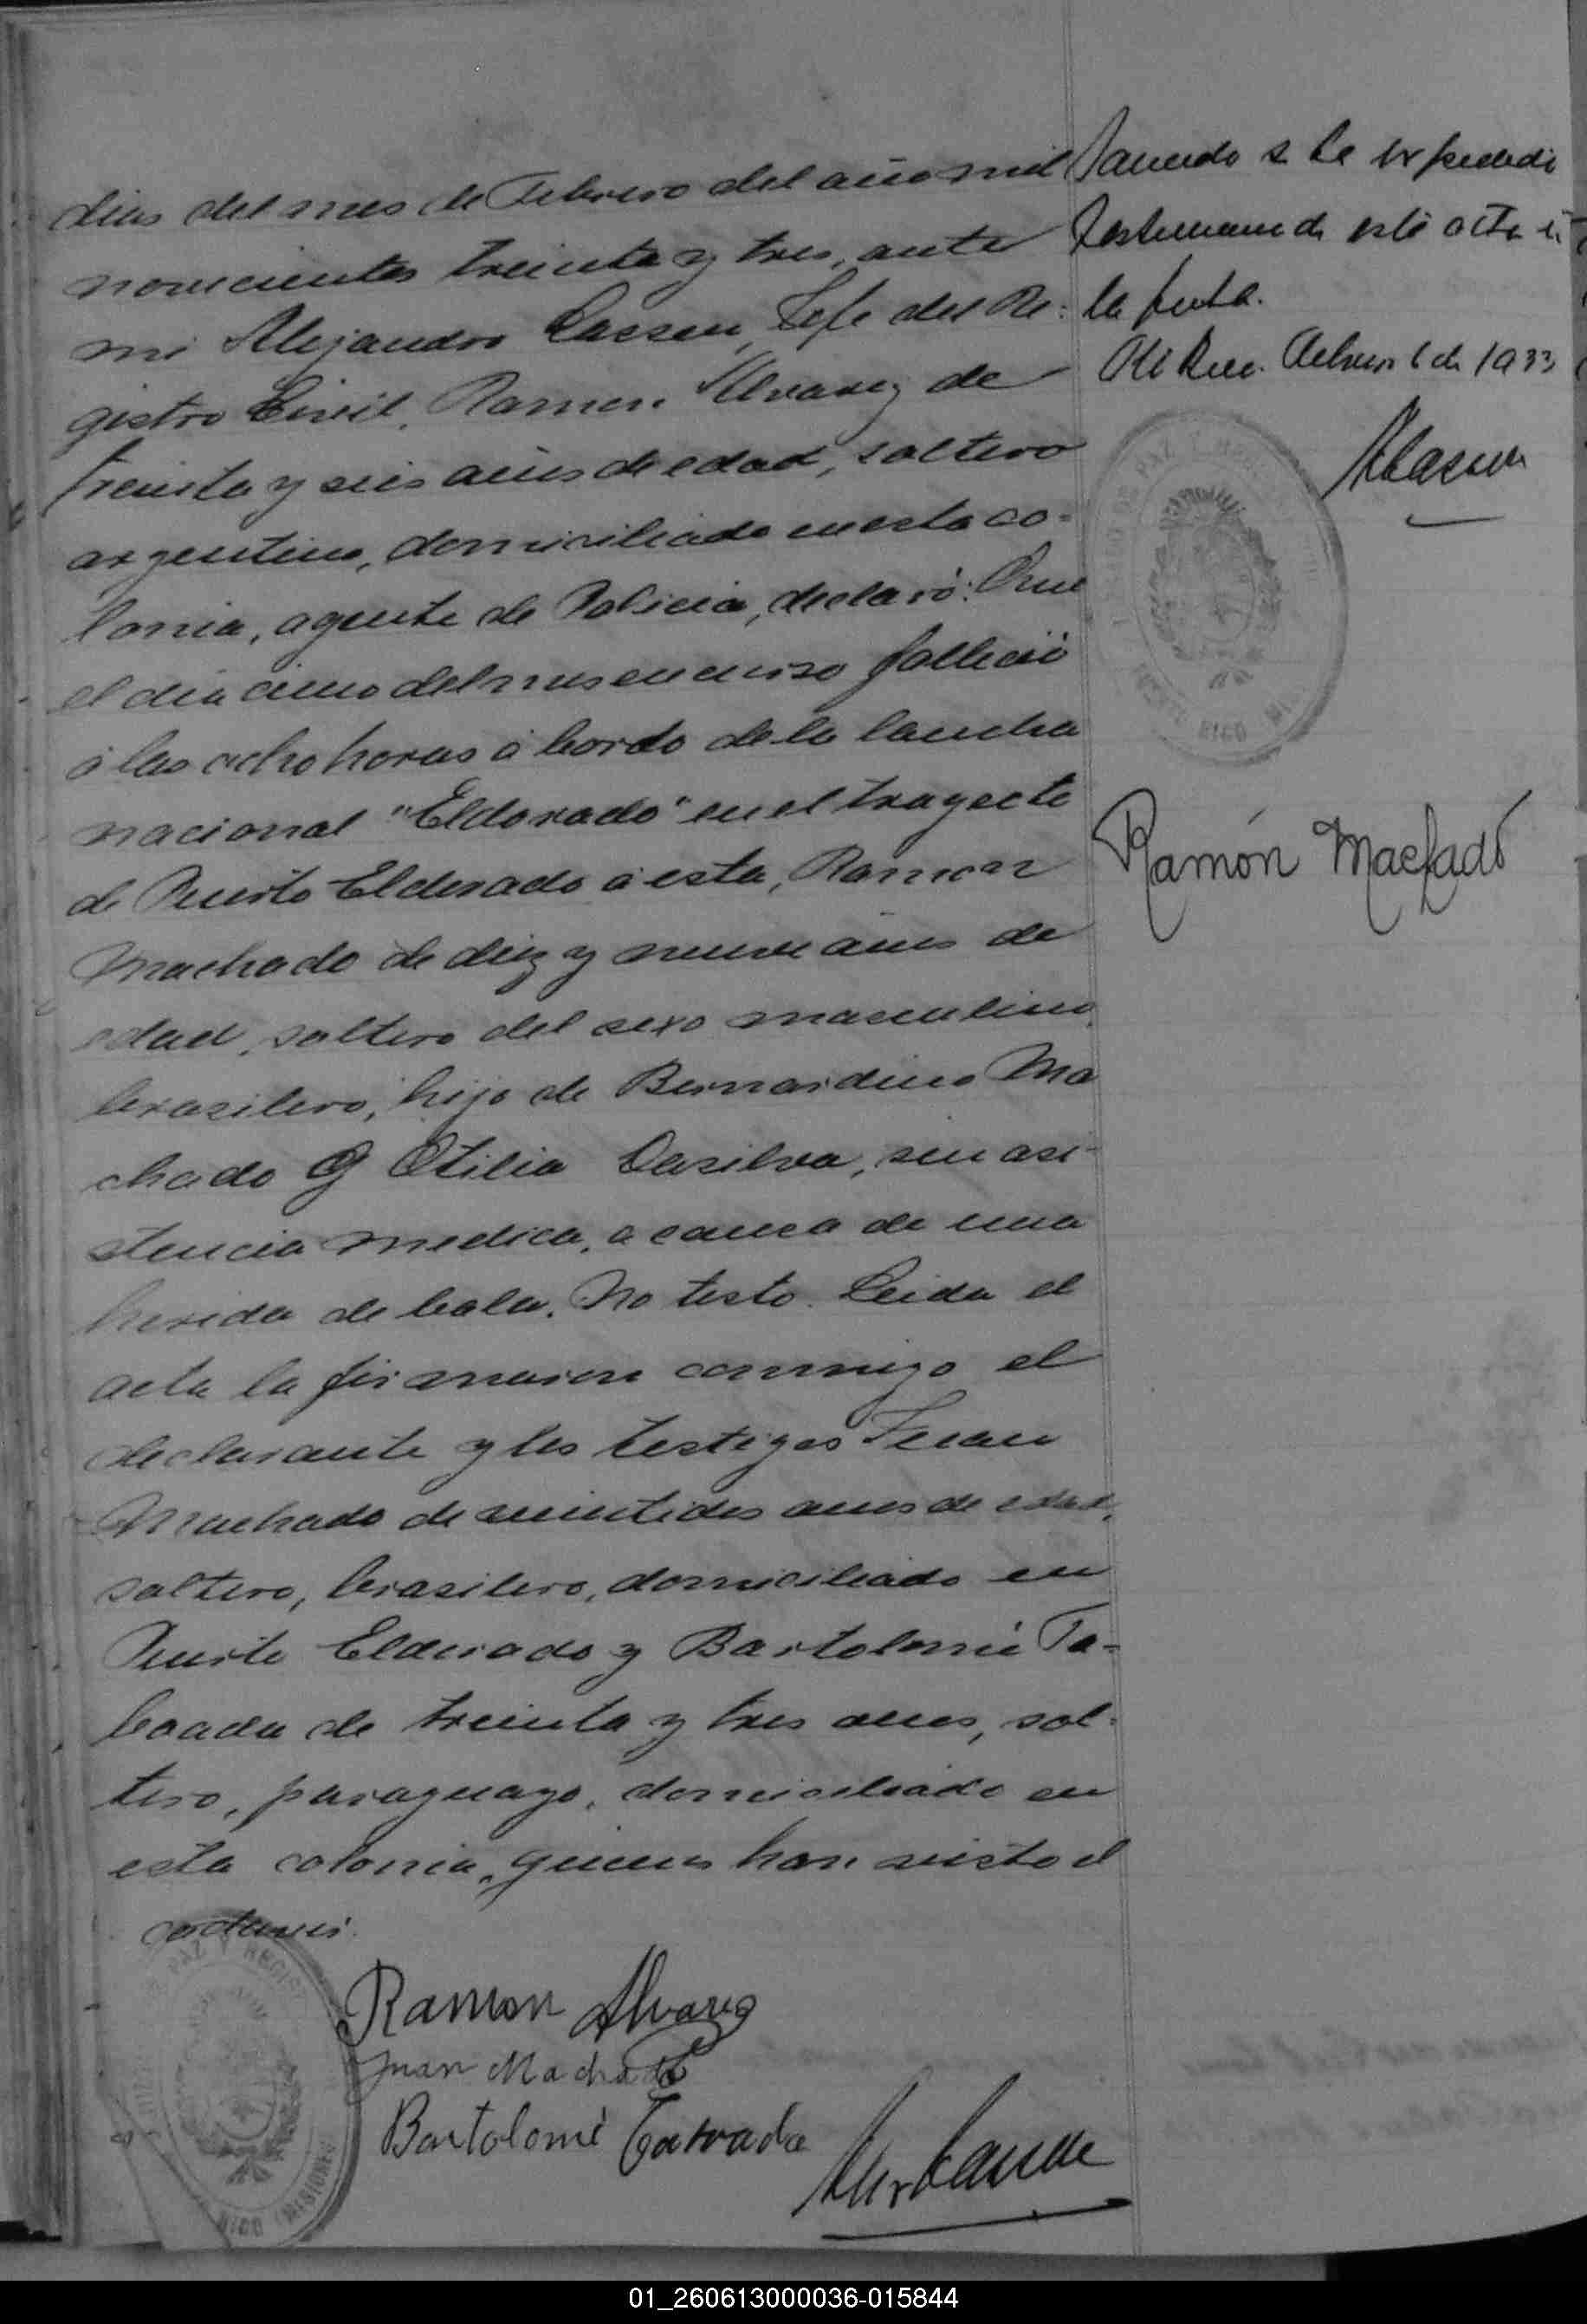 dias del mes de Febrero del año mil
novecientos treinta y tres, ante
mi Alejandro Lassen, Jefe del Re=
gistro Civil, Ramon Alvarez de
treinta y seis años de edad, soltero
argentino, domiciliado en esta co=
lonia, agente de Policia, declaró: Que
el dia cinco del mes en curso falleció
á las ocho horas á bordo de la lancha
nacional "Eldorado" en el trayecto
de Puerto Eldorado á esta, Ramon
Machado de diez y nueve años de
edad, soltero del sexo masculino,
brasilero, hijo de Bernardino Ma
chado y Otilia Dasilva, sin asi-
stencia medica, a causa de una
herida de bala. No testo. Leida el
acta la firmaron conmigo el
declarante y los testigos Juan
Machado de veintidos anos de edad,
soltero, brasilero, domiciliado en
Puerto Eldorado y Bartolomé Ta=
boada de treinta y tres anos, sol-
tero, paraguayo, domiciliado en
esta colonia, quienes han visto el
cadaver.
Ramon Alvarez
Juan Machado
Bartolomé Taboada
Alej Lassen
se le expedió
testimonio de este acta en
la fecha.
Febrero 6 de 1933
ALassen
JUZGADO DE PAZ Y REGISTRO CIVIL
PUERTO RICO MISIONES
Ramón Machado
DE PAZ Y REGISTRO
RICO (MISIONES)
01_260613000036-015844